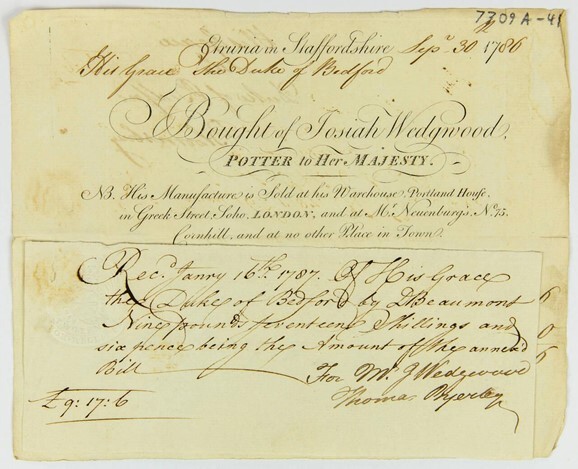 7309 A-41
Etruria in Staffordshire Sepr. 30th 1786
His Grace The Duke of Bedford
Bought of Josiah Wedgwood,
POTTER to Her MAJESTY.
NB. His Manufacture is Sold at his Warehouse, Portland House,
in Greek Street, Soho, LONDON, and at Mr. Neuenburg's, No. 75,
Cornhill, and at no other Place in Town.
Recd. Janry 16th. 1787. Of His Grace
the Duke of Bedford by Beaumont
Nine pounds seventeen Shillings and
six pence being the Amount of the annex'd
Bill
For Mr. J Wedgwood
£9:17:6
Thomas Byerley
6
0
6